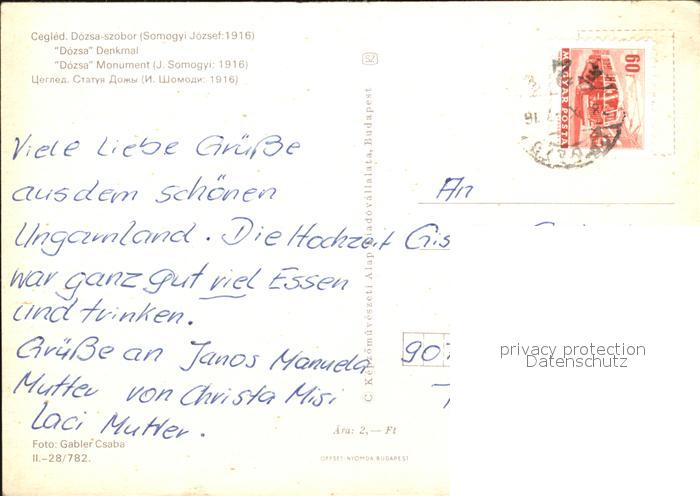 Cegléd. Dózsa-szobor (Somogyi József:1916)
"Dózsa" Denkmal
"Dózsa" Monument (J. Somogyi: 1916)
Цеглед. Статуя Дожы (И. Шомоди: 1916)
SZ
60
MAGYAR POSTA
Viele liebe Grüße
aus dem schönen
Ungarnland. Die Hochzeit
war ganz gut viel Essen
und trinken.
Grüße an Janos Manuela
Mutter von Christa Misi
Laci Mutter.
Foto: Gabler Csaba
II.-28/782.
C Képzőművészeti Alap Kiadóvállalata, Budapest
An
Gis
907
privacy protection
Datenschutz
Ára: 2,— Ft
OFFSET-NYOMDA BUDAPEST